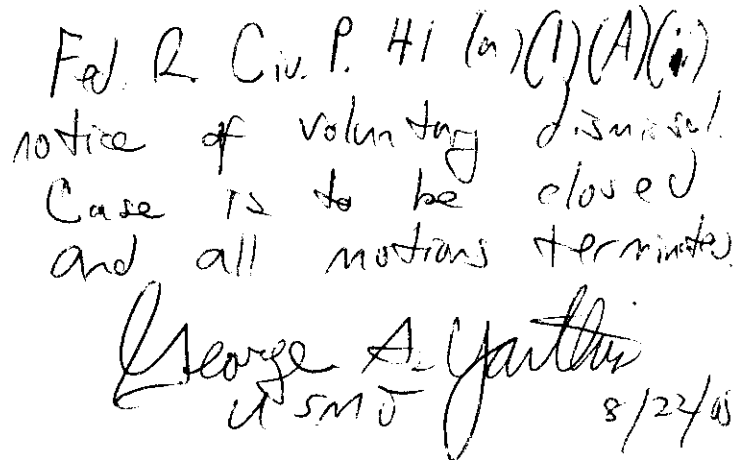 Fed. R. Civ. P. 41 (a)(1)(A)(i)
notice of voluntary dismissal.
Case is to be closed
and all motions terminated.
George A. Yanthis
USMJ 8/22/08